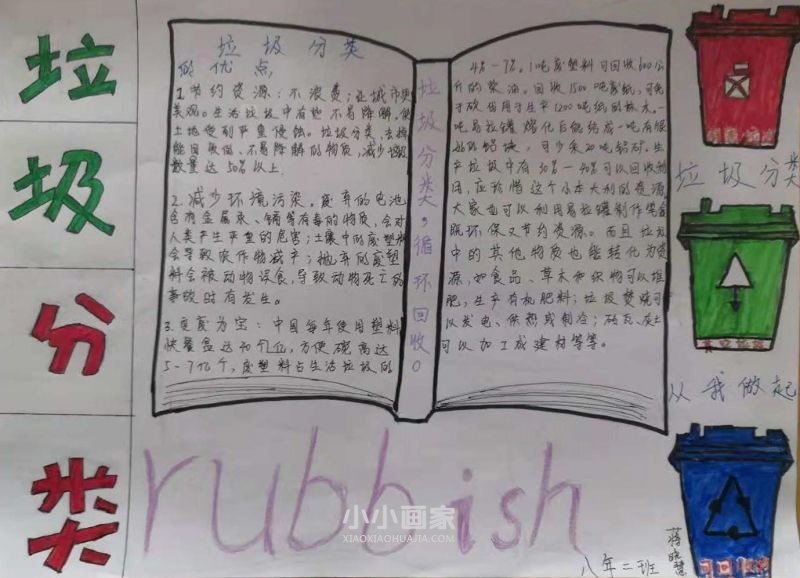 垃
圾
分
类
垃圾分类
的优点
1.节约资源:不浪费;让城市更
美观。生活垃圾中有些不易降解,使
土地受到严重侵蚀。垃圾分类,去掉
能回收的、不易降解的物质,减少垃圾
数量达50%以上.
2.减少环境污染。废弃的电池
含有金属汞、镉等有毒的物质,会对
人类产生严重的危害;土壤中的废塑料
会导致农作物减产;抛弃的废塑
料会被动物误食,导致动物死亡的
事故时有发生。
3.变废为宝:中国每年使用塑料
快餐盒达40个亿,方便碗高达
5-7亿个,废塑料占生活垃圾的
垃圾分类,循环回收。
4%-7%。1吨废塑料可回收600公
斤的柴油。回收1500吨废纸,可免
于砍伐用于生产1200吨纸的林木。一
吨易拉罐熔化后能结成一吨有很
好的铝块,可少采20吨铝矿。生
产垃圾中有30%-40%可以回收利
用,应珍惜这个小本大利的资源
大家也可以利用易拉罐制作笔盒
既环保又节约资源。而且垃圾
中的其他物质也能转化为资
源,如食品、草木和织物可以堆
肥,生产有机肥料;垃圾焚烧可
以发电、供热或制冷;砖瓦、灰土
可以加工成建材等等。
垃圾分类
从我做起
可回收物
rubbish
小小画家
XIAOXIAOHUAJIA.COM
八年二班